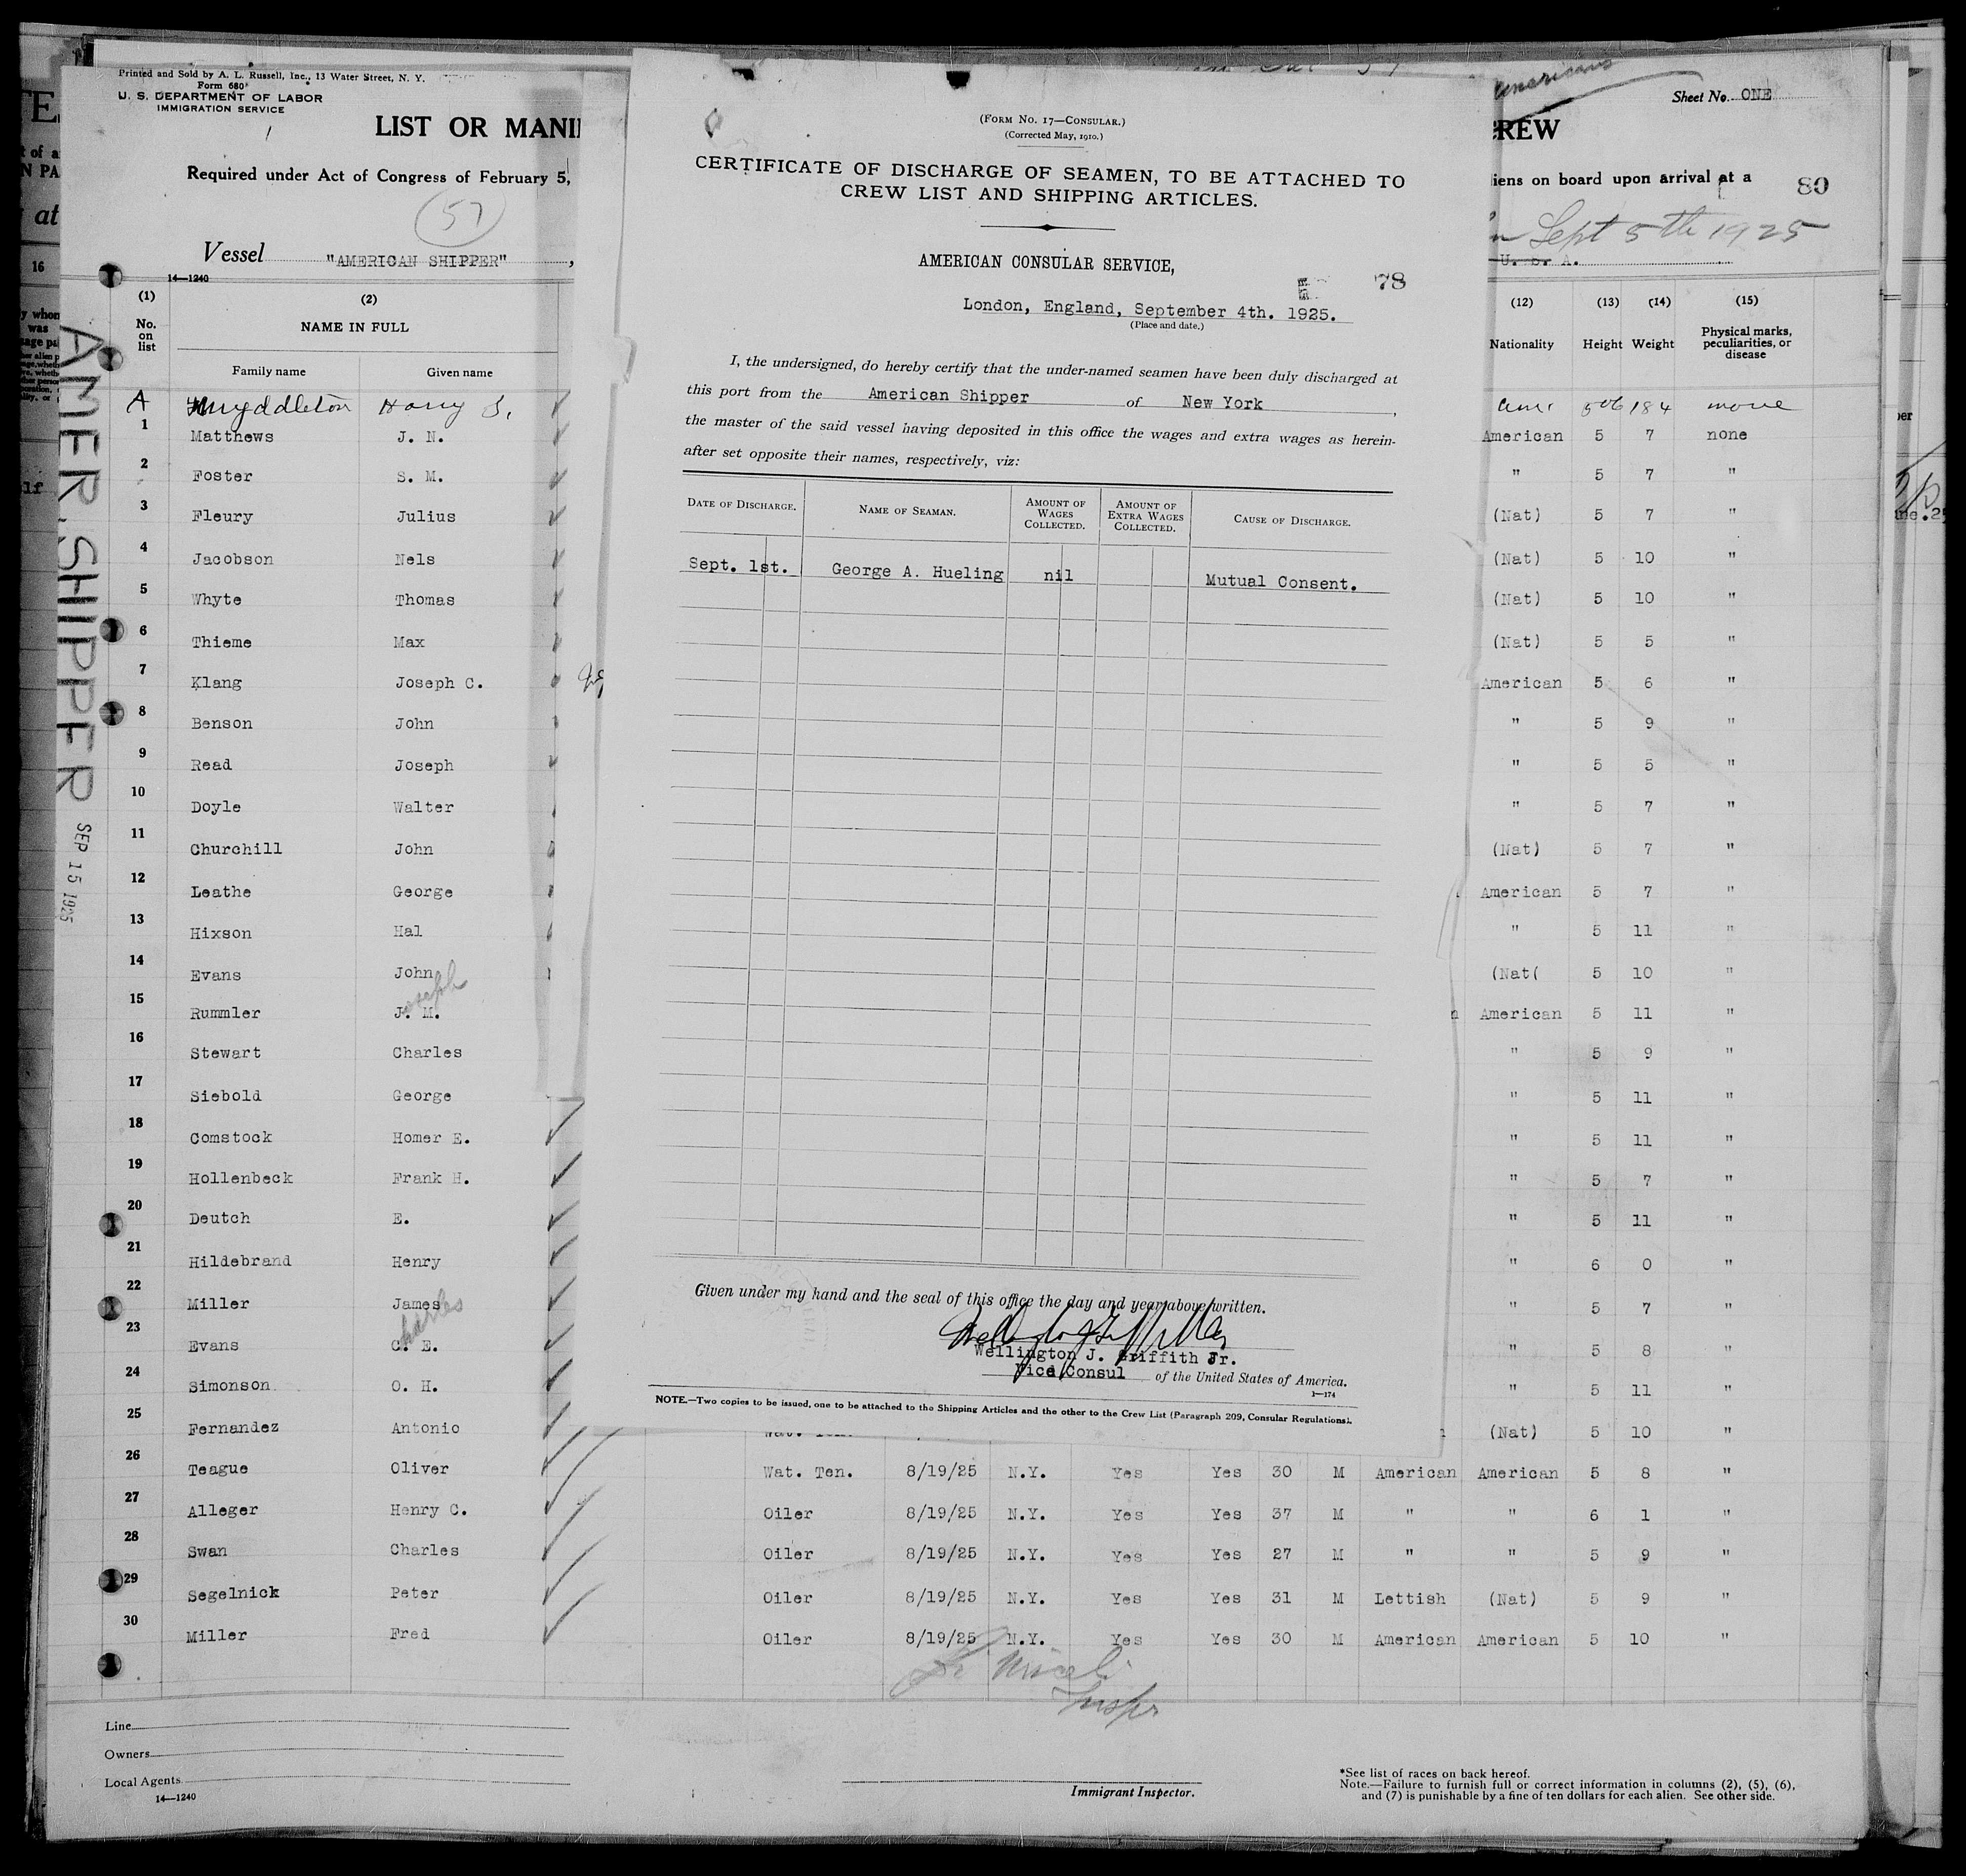 Printed and Sold by A. L. Russell, Inc., 13 Water Street, N. Y.
Form 680
U. S. DEPARTMENT OF LABOR
IMMIGRATION SERVICE
LIST OR MANI
Required under Act of Congress of February 5,
57
Vessel "AMERICAN SHIPPER",
14—1240
(1) (2)
No. on list
NAME IN FULL
Family name Given name
A Myddleton Harry S.
1 Matthews J. N.
2 Foster S. M.
3 Fleury Julius
4 Jacobson Nels
5 Whyte Thomas
6 Thieme Max
7 Klang Joseph C.
8 Benson John
9 Read Joseph
10 Doyle Walter
11 Churchill John
12 Leathe George
13 Hixson Hal
14 Evans John
15 Rummler J. M. Joseph
16 Stewart Charles
17 Siebold George
18 Comstock Homer E.
19 Hollenbeck Frank H.
20 Deutch E.
21 Hildebrand Henry
22 Miller James
23 Evans C. E. Charles
24 Simonson O. H.
25 Fernandez Antonio
26 Teague Oliver
27 Alleger Henry C.
28 Swan Charles
29 Segelnick Peter
30 Miller Fred
AMER.SHIPPER SEP 15 1925
Line
Owners
Local Agents
14—1240
(FORM NO. 17—CONSULAR.)
(Corrected May, 1910.)
CERTIFICATE OF DISCHARGE OF SEAMEN, TO BE ATTACHED TO
CREW LIST AND SHIPPING ARTICLES.
AMERICAN CONSULAR SERVICE,
78
London, England, September 4th. 1925.
(Place and date.)
I, the undersigned, do hereby certify that the under-named seamen have been duly discharged at
this port from the American Shipper of New York,
the master of the said vessel having deposited in this office the wages and extra wages as herein-
after set opposite their names, respectively, viz:
DATE OF DISCHARGE. NAME OF SEAMAN. AMOUNT OF WAGES COLLECTED. AMOUNT OF EXTRA WAGES COLLECTED. CAUSE OF DISCHARGE.
Sept. 1st. George A. Hueling nil Mutual Consent.
Given under my hand and the seal of this office the day and year above written.
Wellington J. Griffith Jr.
Vice Consul of the United States of America.
1—174
NOTE.—Two copies to be issued, one to be attached to the Shipping Articles and the other to the Crew List (Paragraph 209, Consular Regulations).
Americans
Sheet No. ONE
CREW
iens on board upon arrival at a
80
Sept 5th 1925
U. S. A.
(12) (13) (14) (15)
Nationality Height Weight Physical marks, peculiarities, or disease
Amer 5 06 184 none
American 5 7 none
" 5 7 "
(Nat) 5 7 "
(Nat) 5 10 "
(Nat) 5 10 "
(Nat) 5 5 "
American 5 6 "
" 5 9 "
" 5 5 "
" 5 7 "
(Nat) 5 7 "
American 5 7 "
" 5 11 "
(Nat( 5 10 "
American 5 11 "
" 5 9 "
" 5 11 "
" 5 11 "
" 5 7 "
" 5 11 "
" 6 0 "
" 5 7 "
" 5 8 "
" 5 11 "
(Nat) 5 10 "
Wat. Ten. 8/19/25 N.Y. Yes Yes 30 M American American 5 8 "
Oiler 8/19/25 N.Y. Yes Yes 37 M " " 6 1 "
Oiler 8/19/25 N.Y. Yes Yes 27 M " " 5 9 "
Oiler 8/19/25 N.Y. Yes Yes 31 M Lettish (Nat) 5 9 "
Oiler 8/19/25 N.Y. Yes Yes 30 M American American 5 10 "
Inspr
Immigrant Inspector.
*See list of races on back hereof.
Note.—Failure to furnish full or correct information in columns (2), (5), (6),
and (7) is punishable by a fine of ten dollars for each alien. See other side.